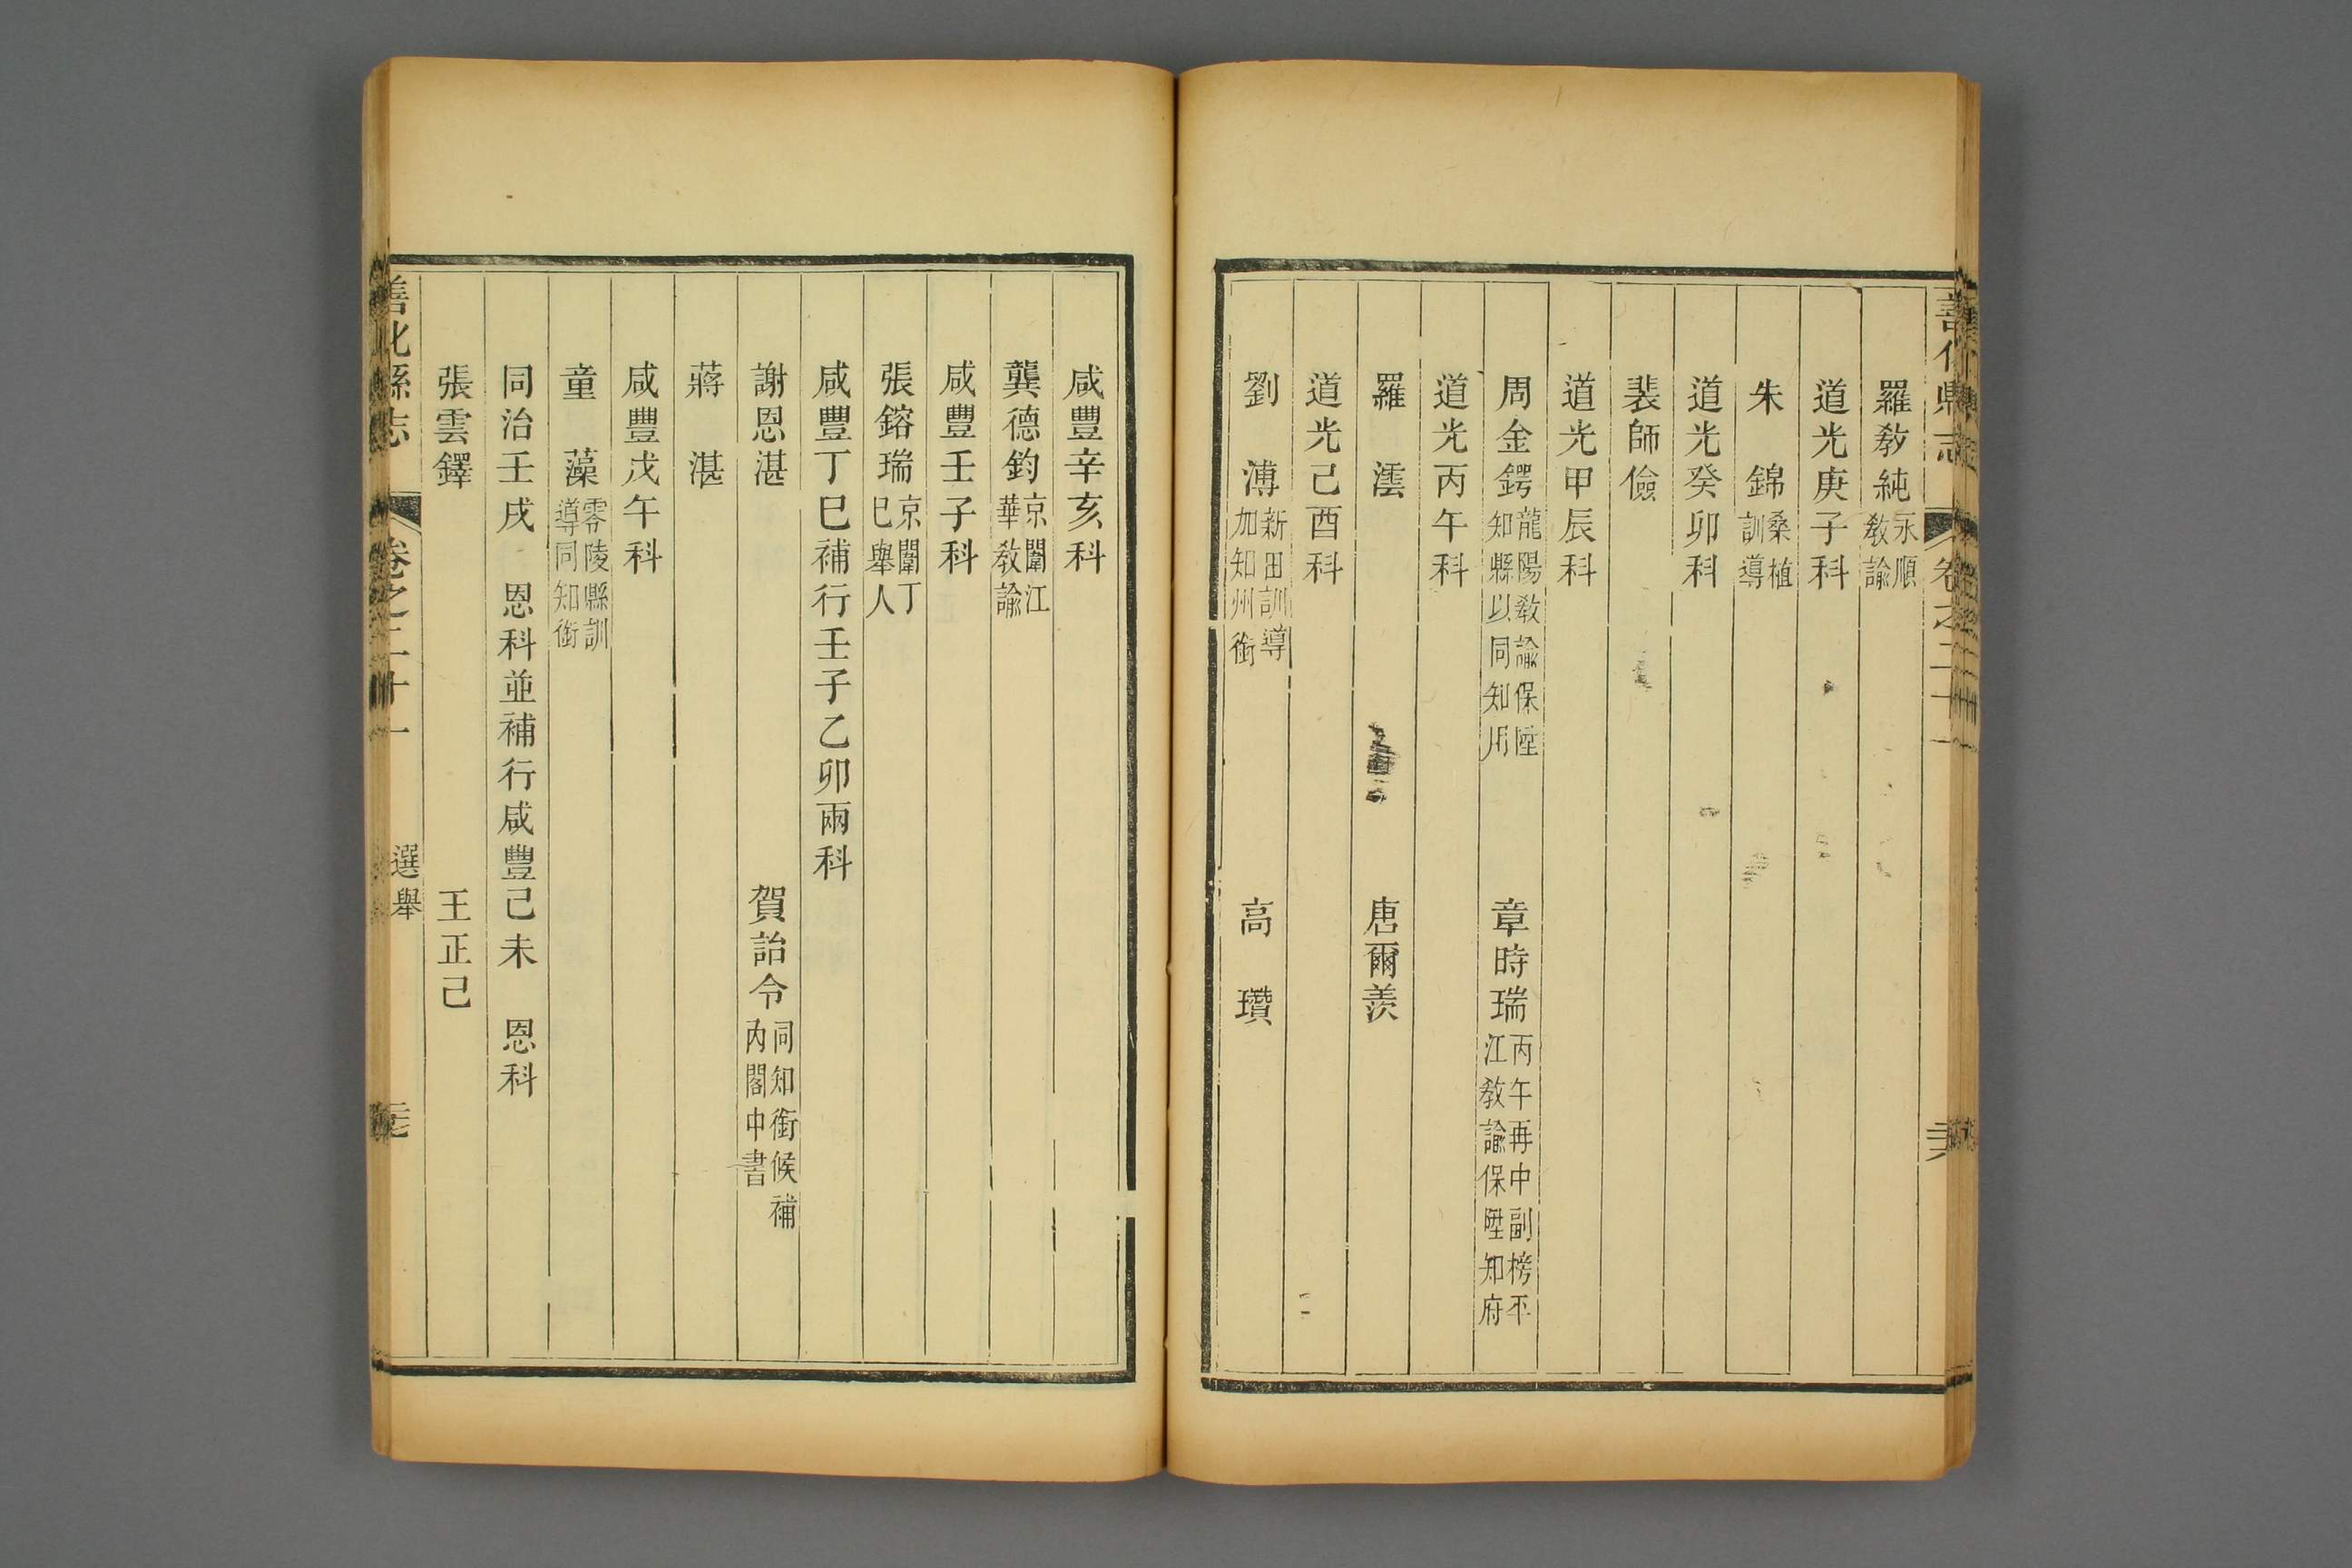 善化縣志 卷之二十一
羅教純 永順教諭
道光庚子科
朱錦 桑植訓導
道光癸卯科
裴師儉
道光甲辰科
周金鍔 龍陽教諭保陞知縣以同知用 章時瑞 丙午再中副榜平江教諭保陞知府
道光丙午科
羅澐 唐爾羨
道光己酉科
劉溥 新田訓導加知州銜 高瓚
咸豐辛亥科
龔德鈞 京闈江華教諭
咸豐壬子科
張鎔瑞 京闈丁巳舉人
咸豐丁巳補行壬子乙卯兩科
謝恩湛 賀詒令 同知銜候補內閣中書
蔣湛
咸豐戊午科
童藻 零陵縣訓導同知銜
同治壬戌 恩科並補行咸豐己未 恩科
張雲鐸 王正己
善化縣志 卷之二十一 選舉